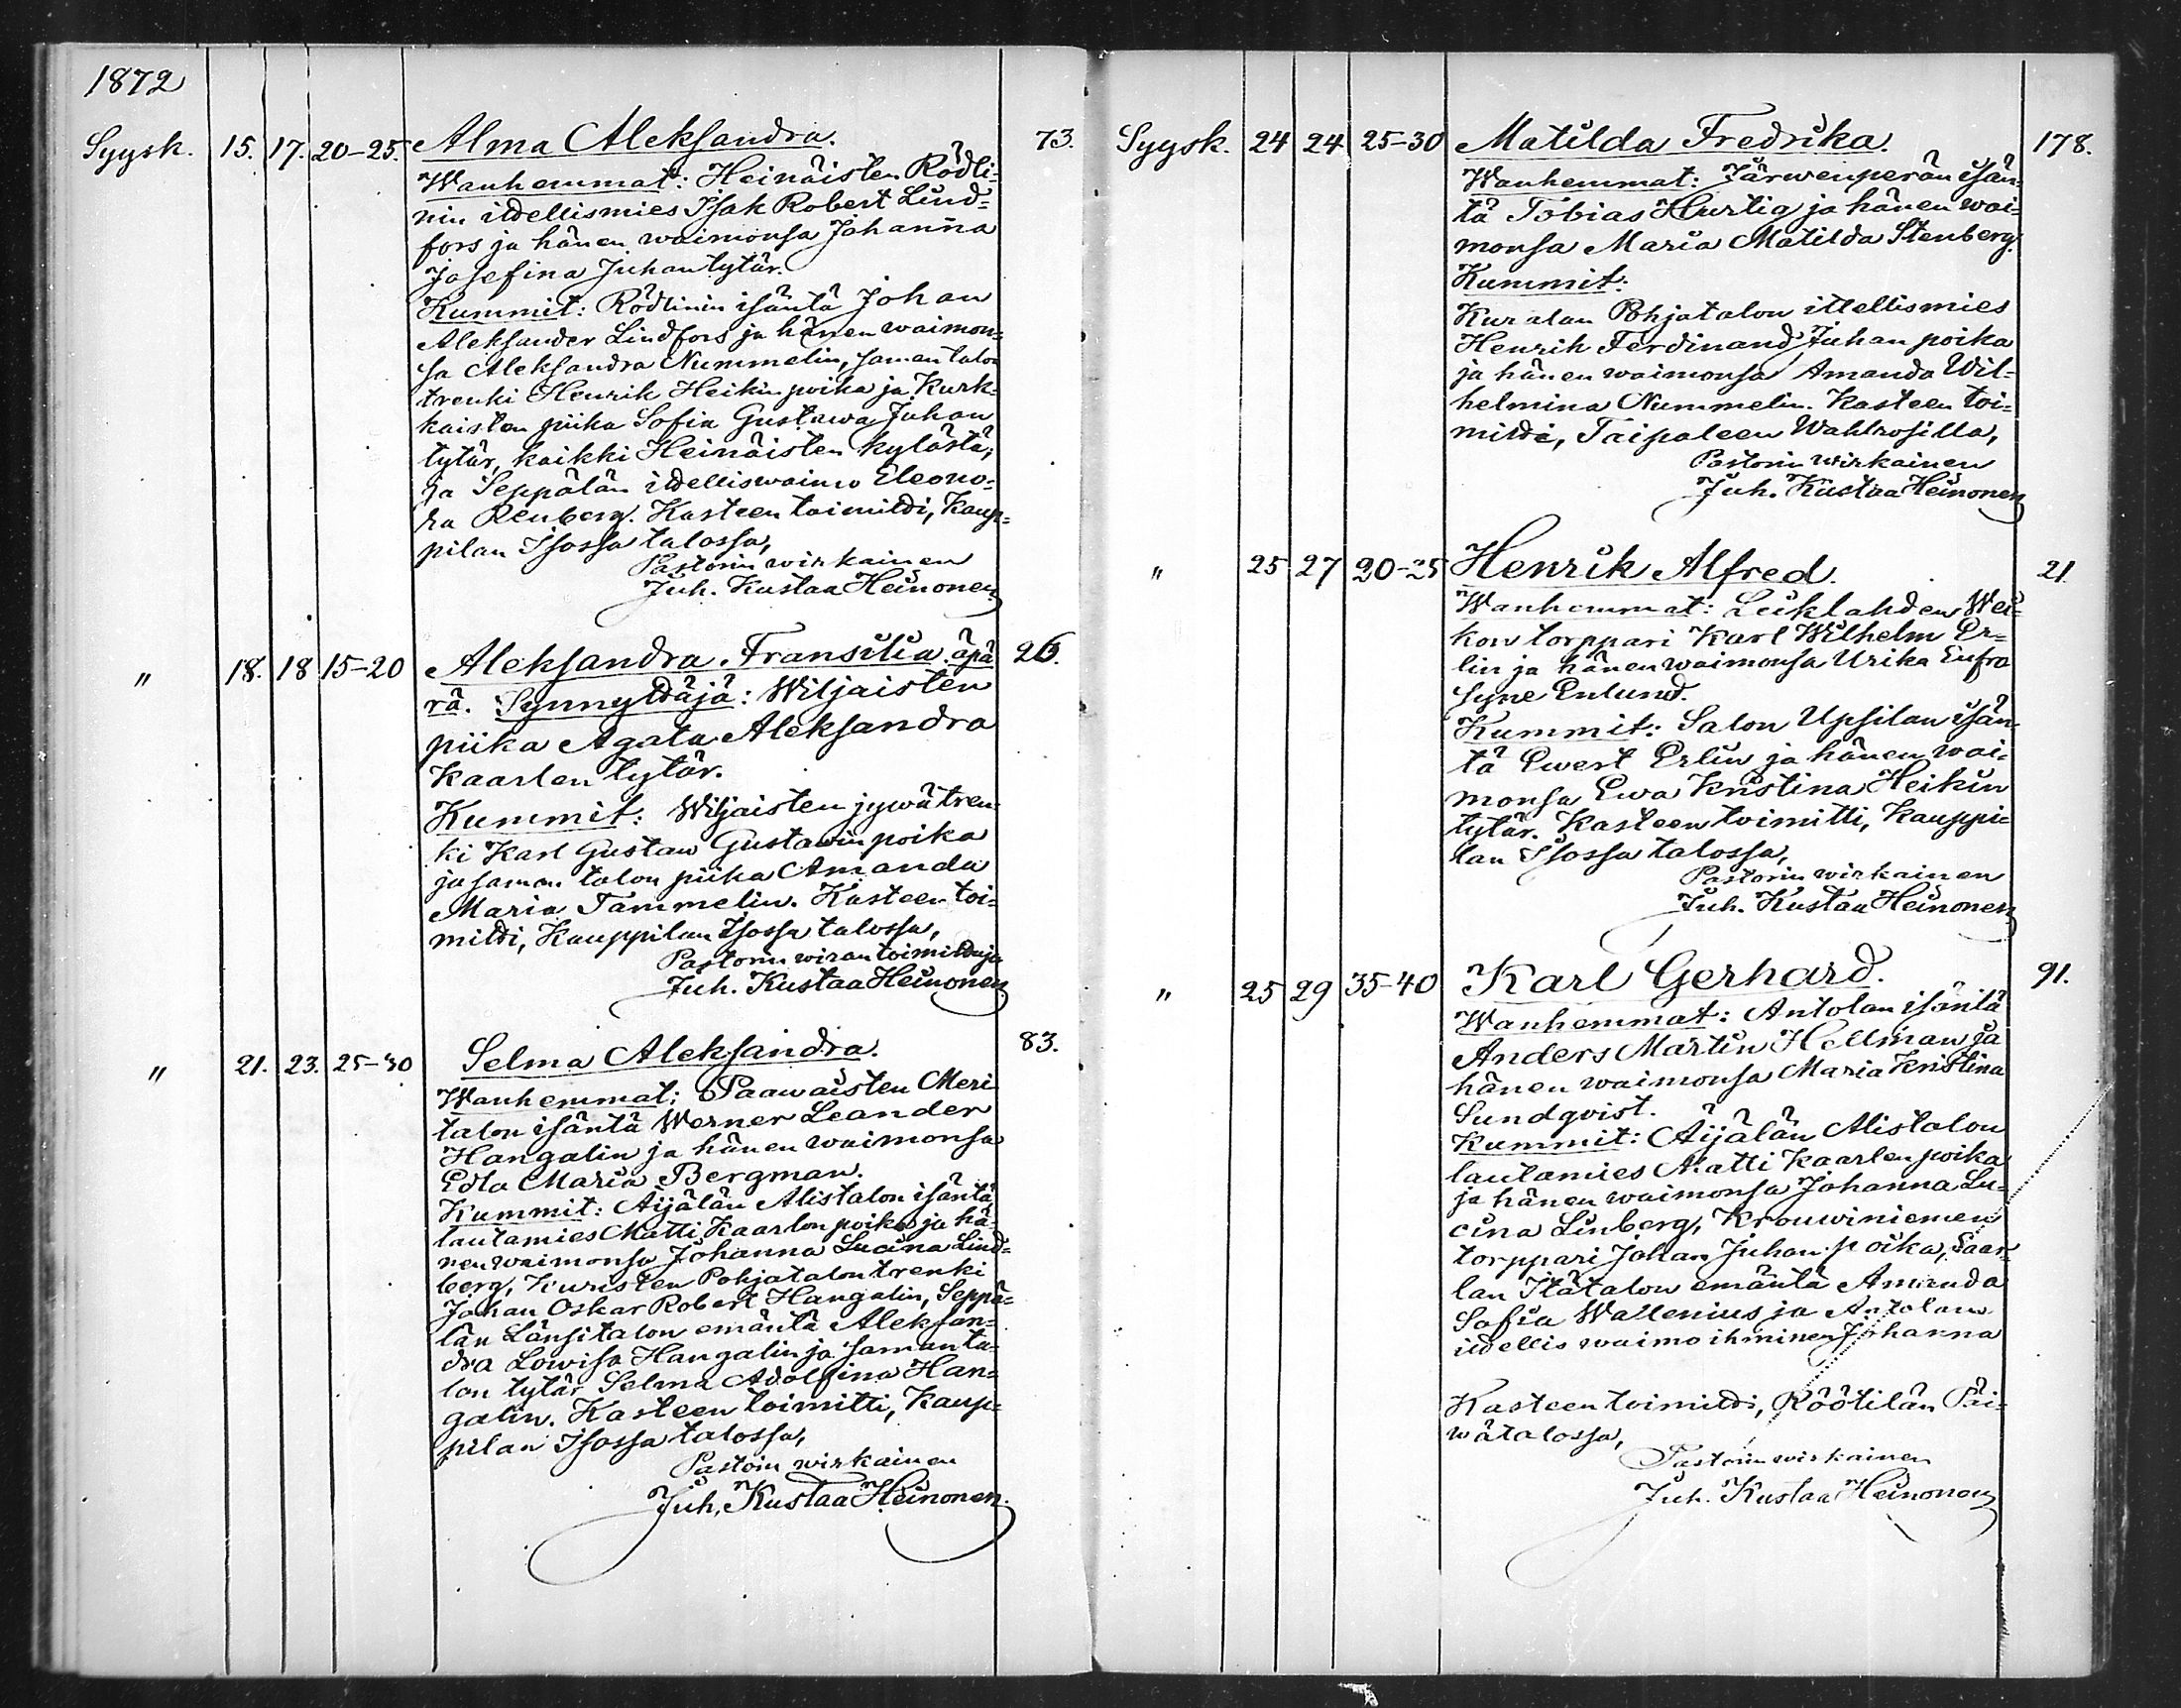 1872
Syysk. 15. 17. 20-25. Alma Aleksandra. 73.
Wanhemmat: Heinäisten Rödli-
nin itdellismies Isak Robert Lind-
fors ja hänen waimonsa Johanna
Josefina Juhantytär.
Kummit: Rödlinin isäntä Johan
Aleksander Lindfors ja hänen waimon-
sa Aleksandra Nummelin, saman talon
trenki Henrik Heikin poika ja Kurk-
kaisten piika Sofia Gustawa Juhan
tytär, kaikki Heinäisten kylästä;
ja Seppälän itdelliswaimo Eleono-
ra Renberg. Kasteen toimitdi, Kaup-
pilan Isossa talossa,
Pastorin wirkainen
Juh. Kustaa Heinonen
" 18. 18 15-20 Aleksandra Fransilia. äpä 26.
rä. Synnyttäjä: Wiljaisten
piika Agata Aleksandra
Kaarlen tytär.
Kummit: Wiljaisten jywätren-
ki Karl Gustaw Gustawin poika
ja saman talon piika Amanda
Maria Tammelin. Kasteen toi-
mitdi, Kauppilan Isossa talossa,
Pastorin wiran toimittaja
Juh. Kustaa Heinonen
" 21. 23. 25-30 Selma Aleksandra. 83.
Wanhemmat: Paawaisten Meri
talon isäntä Werner Leander
Hangalin ja hänen waimonsa
Edla Maria Bergman.
Kummit: Äijälän Alistalon isäntä
lautamies Matti Kaarlon poika ja hä-
nen waimonsa Johanna Lucina Lind-
berg, Kuristen Pohjatalon trenki
Johan Oskar Robert Hangalin, Seppä-
län Länsitalon emäntä Aleksan-
dra Lowisa Hangalin ja saman ta-
lon tytär Selma Adolfina Han-
galin. Kasteen toimitti, Kaup-
pilan Isossa talossa,
Pastorin wirkainen
Juh. Kustaa Heinonen.
Syysk. 24 24 25-30 Matilda Fredrika. 178.
Wanhemmat: Järwenperän isän-
tä Tobias Hurtig ja hänen wai-
monsa Maria Matilda Stenberg.
Kummit:
Kuralan Pohjatalon ittellismies
Henrik Ferdinand Juhan poika
ja hänen waimonsa Amanda Wil-
helmina Nummelin. Kasteen toi-
mitdi, Taipaleen Wahlrosilla,
Pastorin wirkainen
Juh. Kustaa Heinonen
" 25 27 20-25 Henrik Alfred. 21.
Wanhemmat: Leiklahden Wei-
kon torppari Karl Wilhelm Er-
lin ja hänen waimonsa Ulrika Eufro
syne Enlund.
Kummit: Salon Upsilan isän-
tä Ewert Erlin ja hänen wai-
monsa Ewa Kristina Heikin
tytär. Kasteen toimitti, Kauppi-
lan Isossa talossa,
Pastorin wirkainen
Juh. Kustaa Heinonen
" 25 29 35-40 Karl Gerhard. 91.
Wanhemmat: Antolan isäntä
Anders Martin Hellman ja
hänen waimonsa Maria Kristina
Sundqvist.
Kummit: Äijälän Alistalon
lautamies Matti Kaarlen poika
ja hänen waimonsa Johanna Lu-
cina Linberg, Krouwiniemen
torppari Johan Juhan poika, Saar-
lan Itätalon emäntä Amanda
Sofia Wallenius ja Antolan
itdellis waimo ihminen Johanna
Kasteen toimitdi, Röötilän Päi-
wätalossa,
Pastorin wirkainen
Juh. Kustaa Heinonen